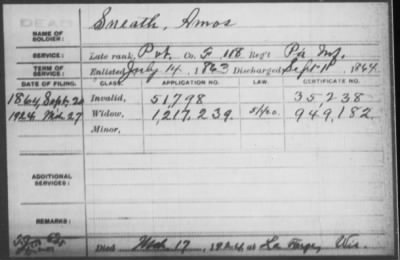 DEAD
NAME OF SOLDIER: Sneath, Amos
SERVICE: Late rank, Pvt. Co. F 188 Reg't Pa Inf.
TERM OF SERVICE: Enlisted July 14 1863 Discharged Sept 11, 1864
DATE OF FILING. CLASS. APPLICATION NO. LAW. CERTIFICATE NO.
1864 Sept. 20 Invalid, 51798 35,238
1924 Mch 27 Widow, 1,217,239 949,182
Minor,
ADDITIONAL SERVICES:
REMARKS:
Died Mch 17, 1924, at La Farge, Wis.